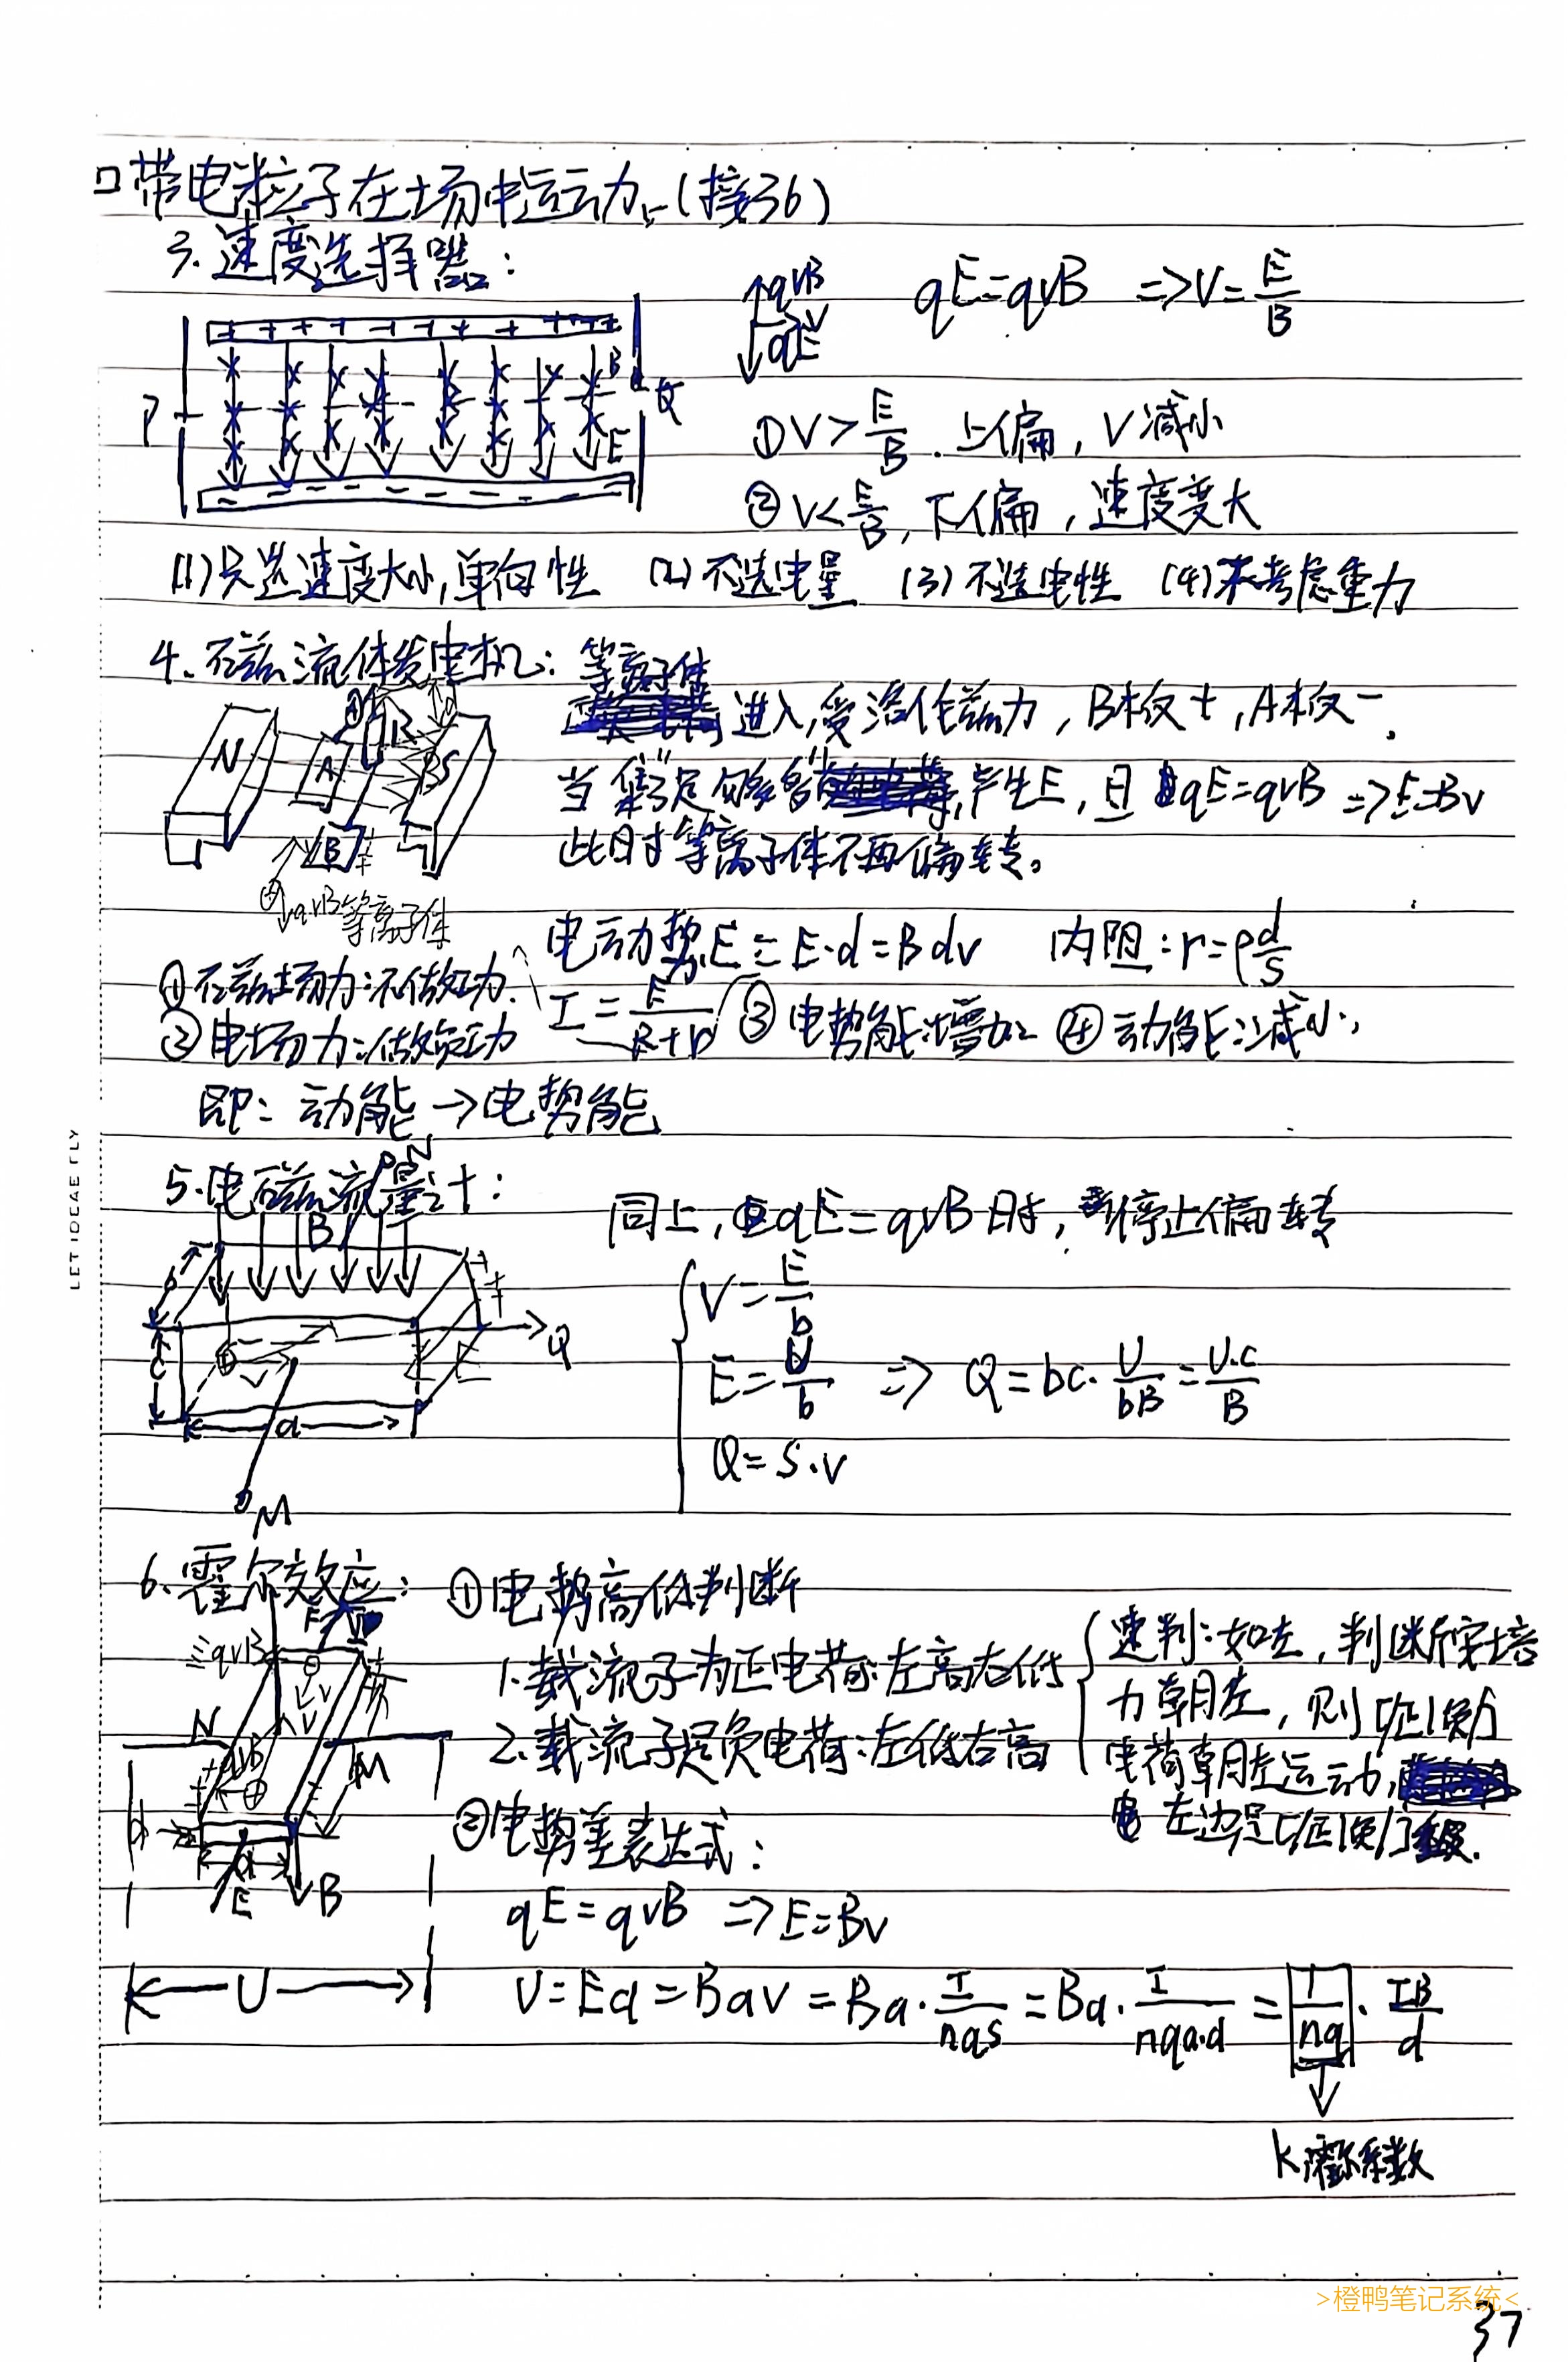 口带电粒子在场中运动(接36)
3.速度选择器:
+ + + + - + + + + + +
P
B
E
Q
qvB
v
qE
qE=qvB => v=E/B
①v>E/B.上偏,v减小
②v<E/B,下偏,速度变大
(1)只选速度大小,单向性 (2)不选电量 (3)不选电性 (4)未考虑重力
4.磁流体发电机:等离子体
进入,受洛伦兹力,B板+,A板-.
N
A
R
S
d
B
qvB等离子体
当"集"足够多,产生E,且qE=qvB =>E=Bv
此时等离子体不再偏转。
电动势E=E·d=Bdv 内阻:r=ρd/S
①磁场力:不做功.
I=E/R+r ③电势能:增加 ④动能:减小.
②电场力:做负功
即:动能→电势能
5.电磁流量计:
N
B
b
c
v
a
Q
M
同上,qE=qvB时,停止偏转
v=E/b
E=U/b => Q=bc·U/bB=U·c/B
Q=S·v
6.霍尔效应:①电势高低判断
1.载流子为正电荷:左高右低
2.载流子是负电荷:左低右高
速判:如左,判断安培
力朝左,则[正|负]
电荷朝左运动,
左边是[正|负]极.
qvB
v
N
M
d
a
E
B
U
②电势差表达式:
qE=qvB =>E=Bv
U=Ea=Bav=Ba·I/nqs=Ba·I/nqa·d=1/nq·IB/d
k霍尔系数
LET IDEAE FLY
>橙鸭笔记系统<
37